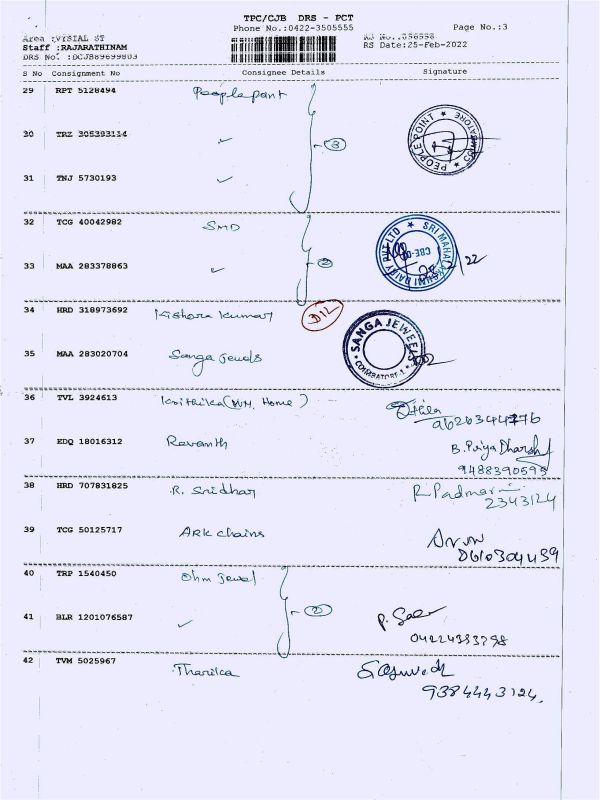 TPC/CJB DRS - PCT
Phone No.:0422-3505555
Page No.:3
Area :VYSIAL ST
Staff :RAJARATHINAM
RS Date:25-Feb-2022
DRS No. :DCJB89699803
S No Consignment No Consignee Details Signature
29 RPT 5128494 Peoplepoint
30 TRZ 305393114 ✓
3
PEOPLE POINT
31 TNJ 5730193 ✓
32 TCG 40042982 SMD
33 MAA 283378863 ✓
2
SRI MAHALAKSHMI DAIRY PVT LTD
34 HRD 318973692 Kishora Kumar
35 MAA 283020704 Sanga Jewels
SANGA JEWEELS
COIMBATORE-1
36 TVL 3924613 Krithika (WM. Home)
9626344776
37 EDQ 18016312 Revanth
B. Priya Dharsh
9488390595
38 HRD 707831825 R. Sridhar
R Padmavi
2343124
39 TCG 50125717 ARK chains
Arun
40 TRP 1540450 Ohm Jewel
41 BLR 1201076587 ✓
2
04224393798
42 TVM 5025967 Tharika
9384443124.